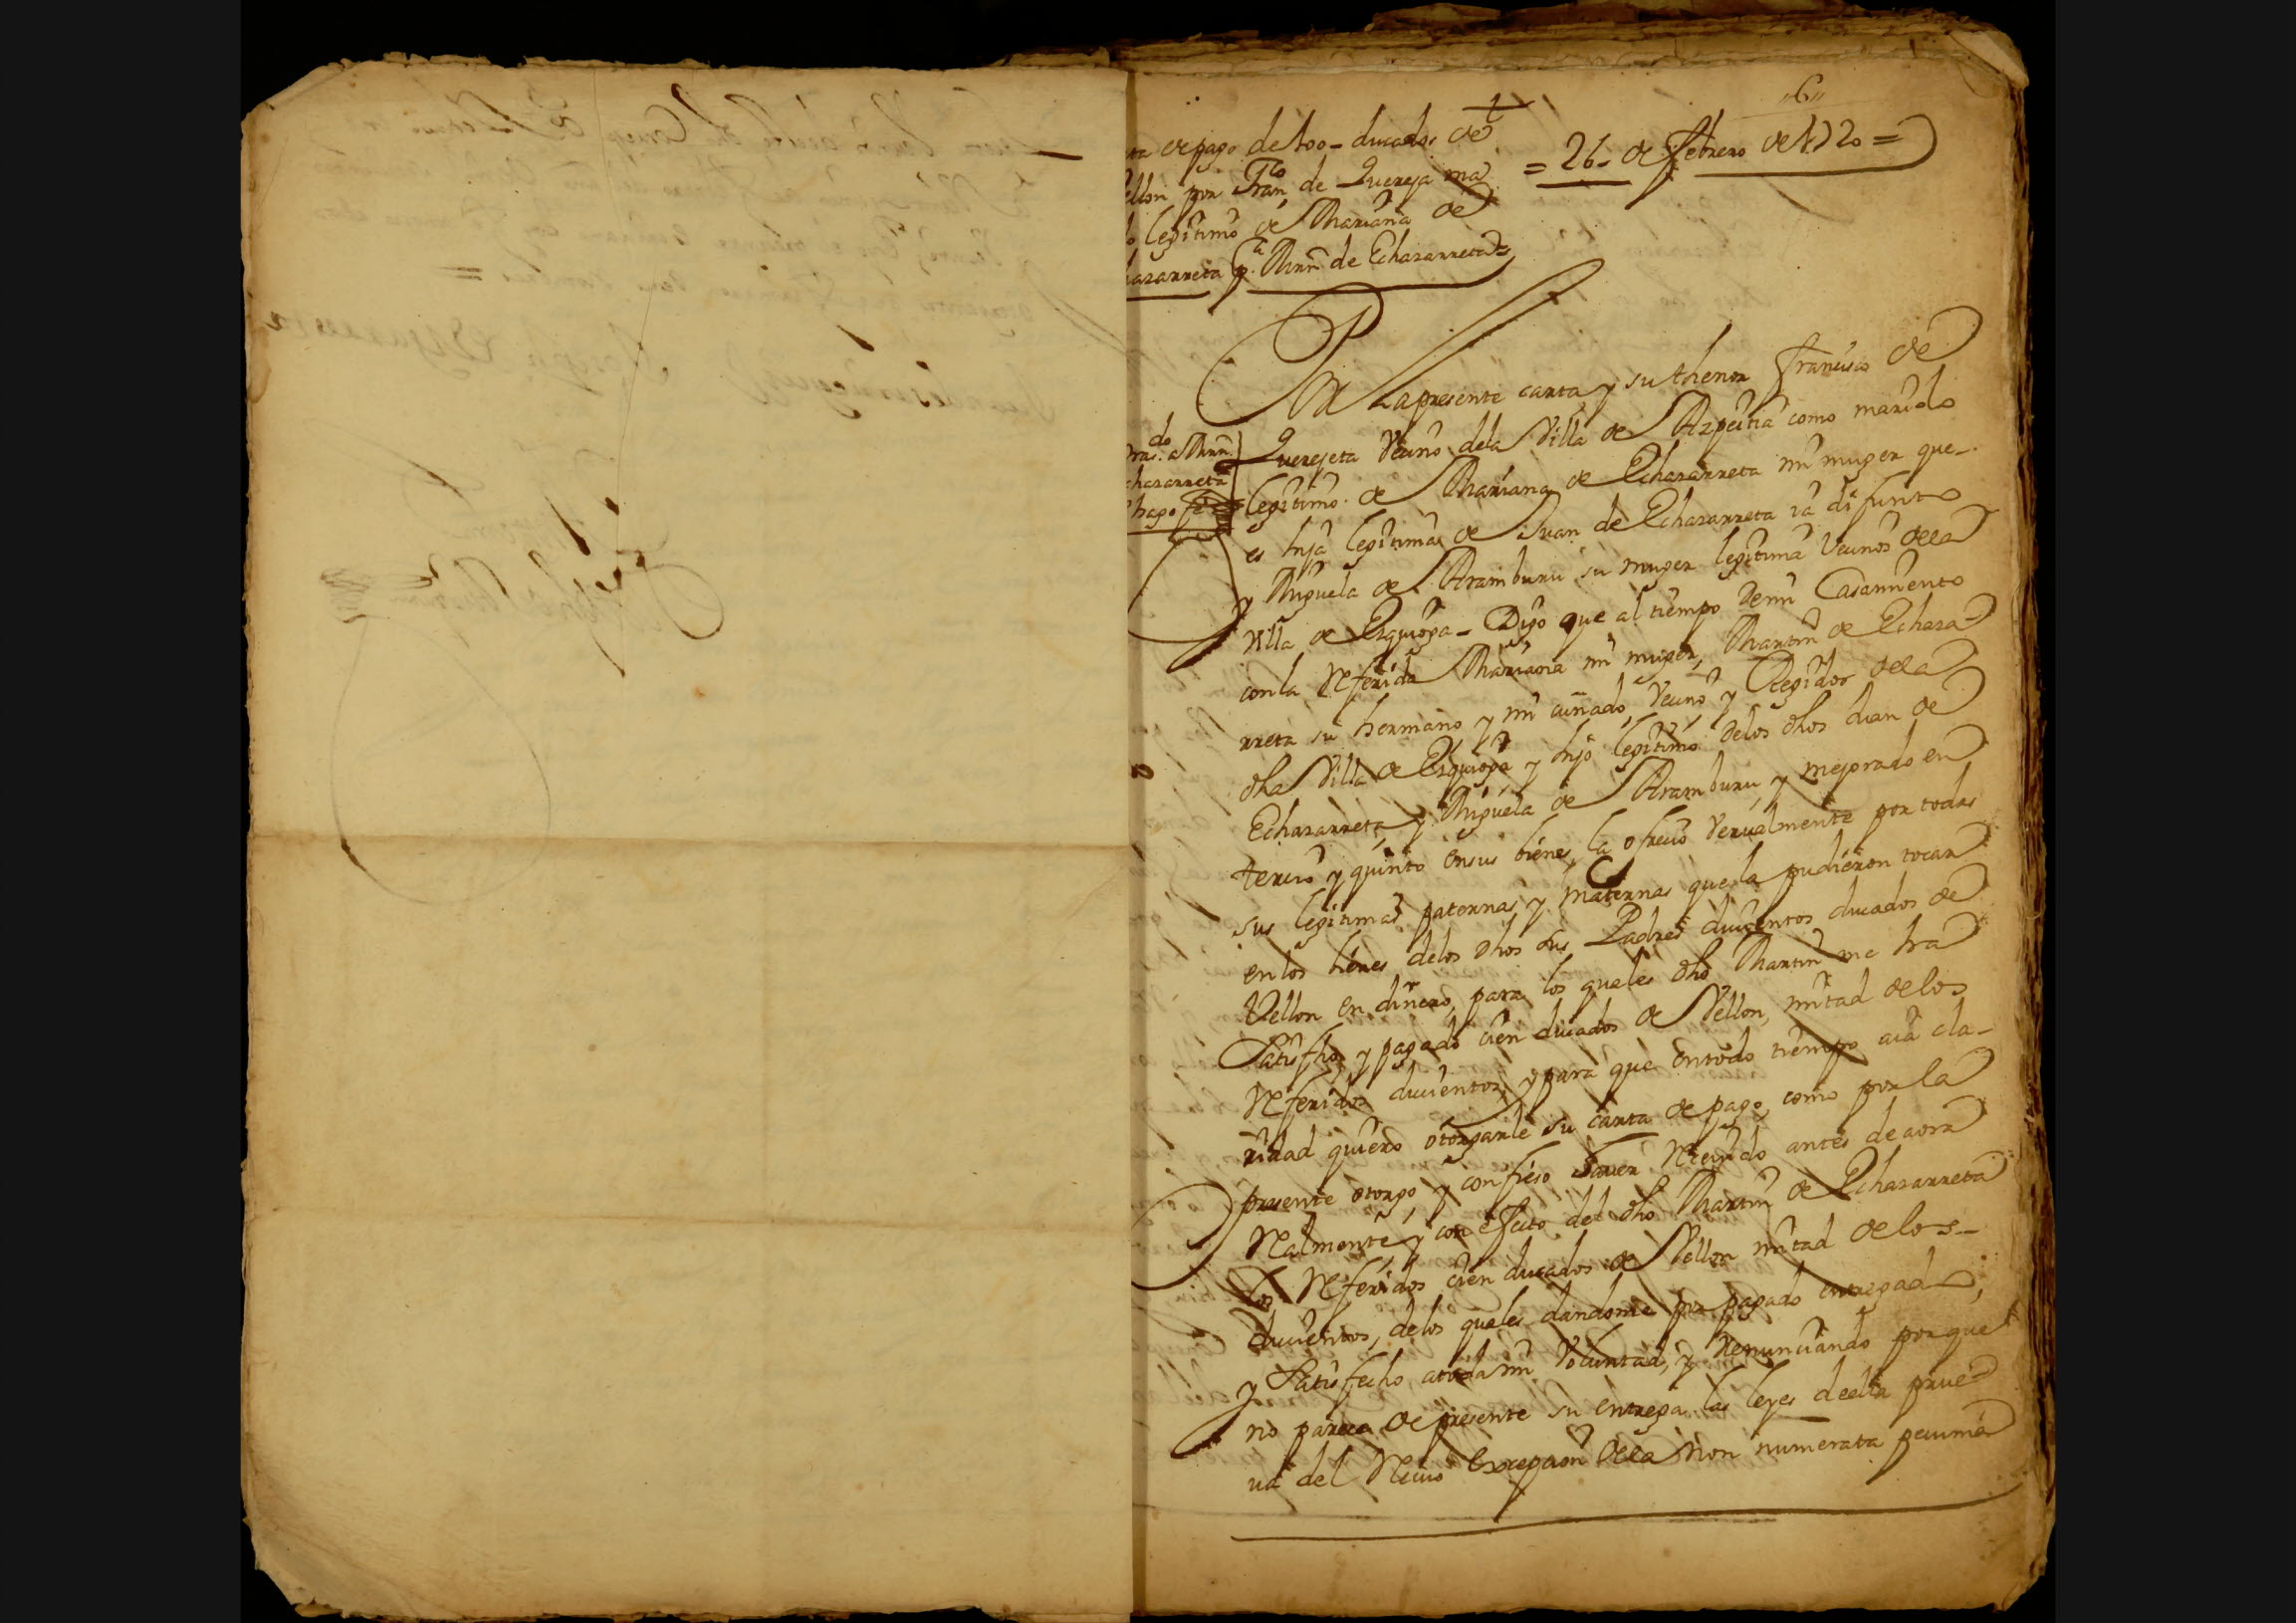 "6"
ta de pago de 100- ducados de
ellon por Franco de Quereja ma
o legitimo de Mariana de
azarreta pa Mrn de Echazarreta=
= 26- de Febrero de 1720 =
Por La presente carta y su thenor Francisco de
Querejeta Vecino dela Villa de Azpeitia como marido
legitimo de Mariana de Echazarreta mi muger que-
es hija legitima de Juan de Echazarreta ia difunto
y Miguela de Aramburu su muger legitima Vecinos dela
Villa de Ezquioga- Digo que al tiempo demi Casamiento
conla Referida Mariana mi muger, Martin de Echaza-
rreta su hermano y mi cuñado, Vecino y Regidor dela
dha Villa de Ezquioga y hijo legitimo delos dhos Juan de
Echazarreta, y Miguela de Aramburu, y mejorado en
tercio y quinto ensus bienes, la ofrecio Vervalmente por todas
sus legitimas paternas y maternas quela pudieron tocar
en los bienes delos dhos sus Padres ducientos ducados de
Vellon en dinero, para los quales dho Martin me ha
Satisfho, y pagado cien ducados de Vellon, mitad delos
Referidos ducientos, y para que entodo tiempo aia cla-
ridad quiero otorgarle su carta de pago, como por la
presente otorgo, y confieso haver Recivido antes de aora
Realmente y con efecto del dho Martin de Echazarreta
los Referidos cien ducados de Vellon mitad delos-
ducientos, delos quales dandome por pagado entregado,
y Satisfecho, atoda mi Voluntad, y Renunciando porque
no pareze de presente su entrega las leyes deella prue-
va del Recivo excepcion dela non numerata pecunia
do
a Mrn
chazarreta
hago fee